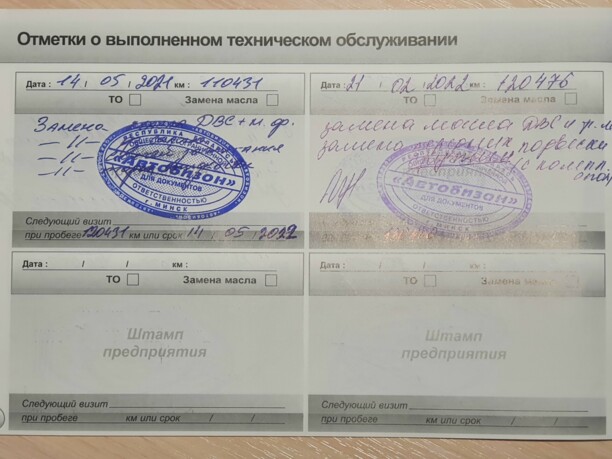 Отметки о выполненном техническом обслуживании
Дата : 14 / 05 / 2021 км : 110431
ТО Замена масла
Замена масла ДВС + м. ф.
— 11 —
— 11 —
— 11 —
РЕСПУБЛИКА БЕЛАРУСЬ
«Автовизон»
ДЛЯ ДОКУМЕНТОВ
ОТВЕТСТВЕННОСТЬЮ
г. МИНСК
Следующий визит
при пробеге 120431 км или срок 14 / 05 / 2022
Дата : 21 / 02 / 2022 км : 120476
ТО Замена масла
замена масла ДВС и
замена подвески
предприятия
«Автовизон»
ДЛЯ ДОКУМЕНТОВ
ОТВЕТСТВЕННОСТЬЮ
Следующий визит
при пробеге км или срок
Дата : / / км :
ТО Замена масла
Штамп
предприятия
Следующий визит
при пробеге км или срок / /
Дата : / / км :
ТО Замена масла
Штамп
предприятия
Следующий визит
при пробеге км или срок / /